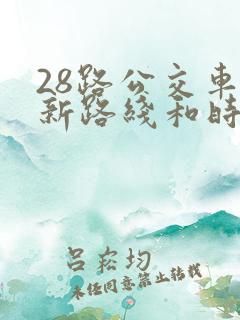 28路公交车
新路线和时
吕崧均
未经同意禁止转载